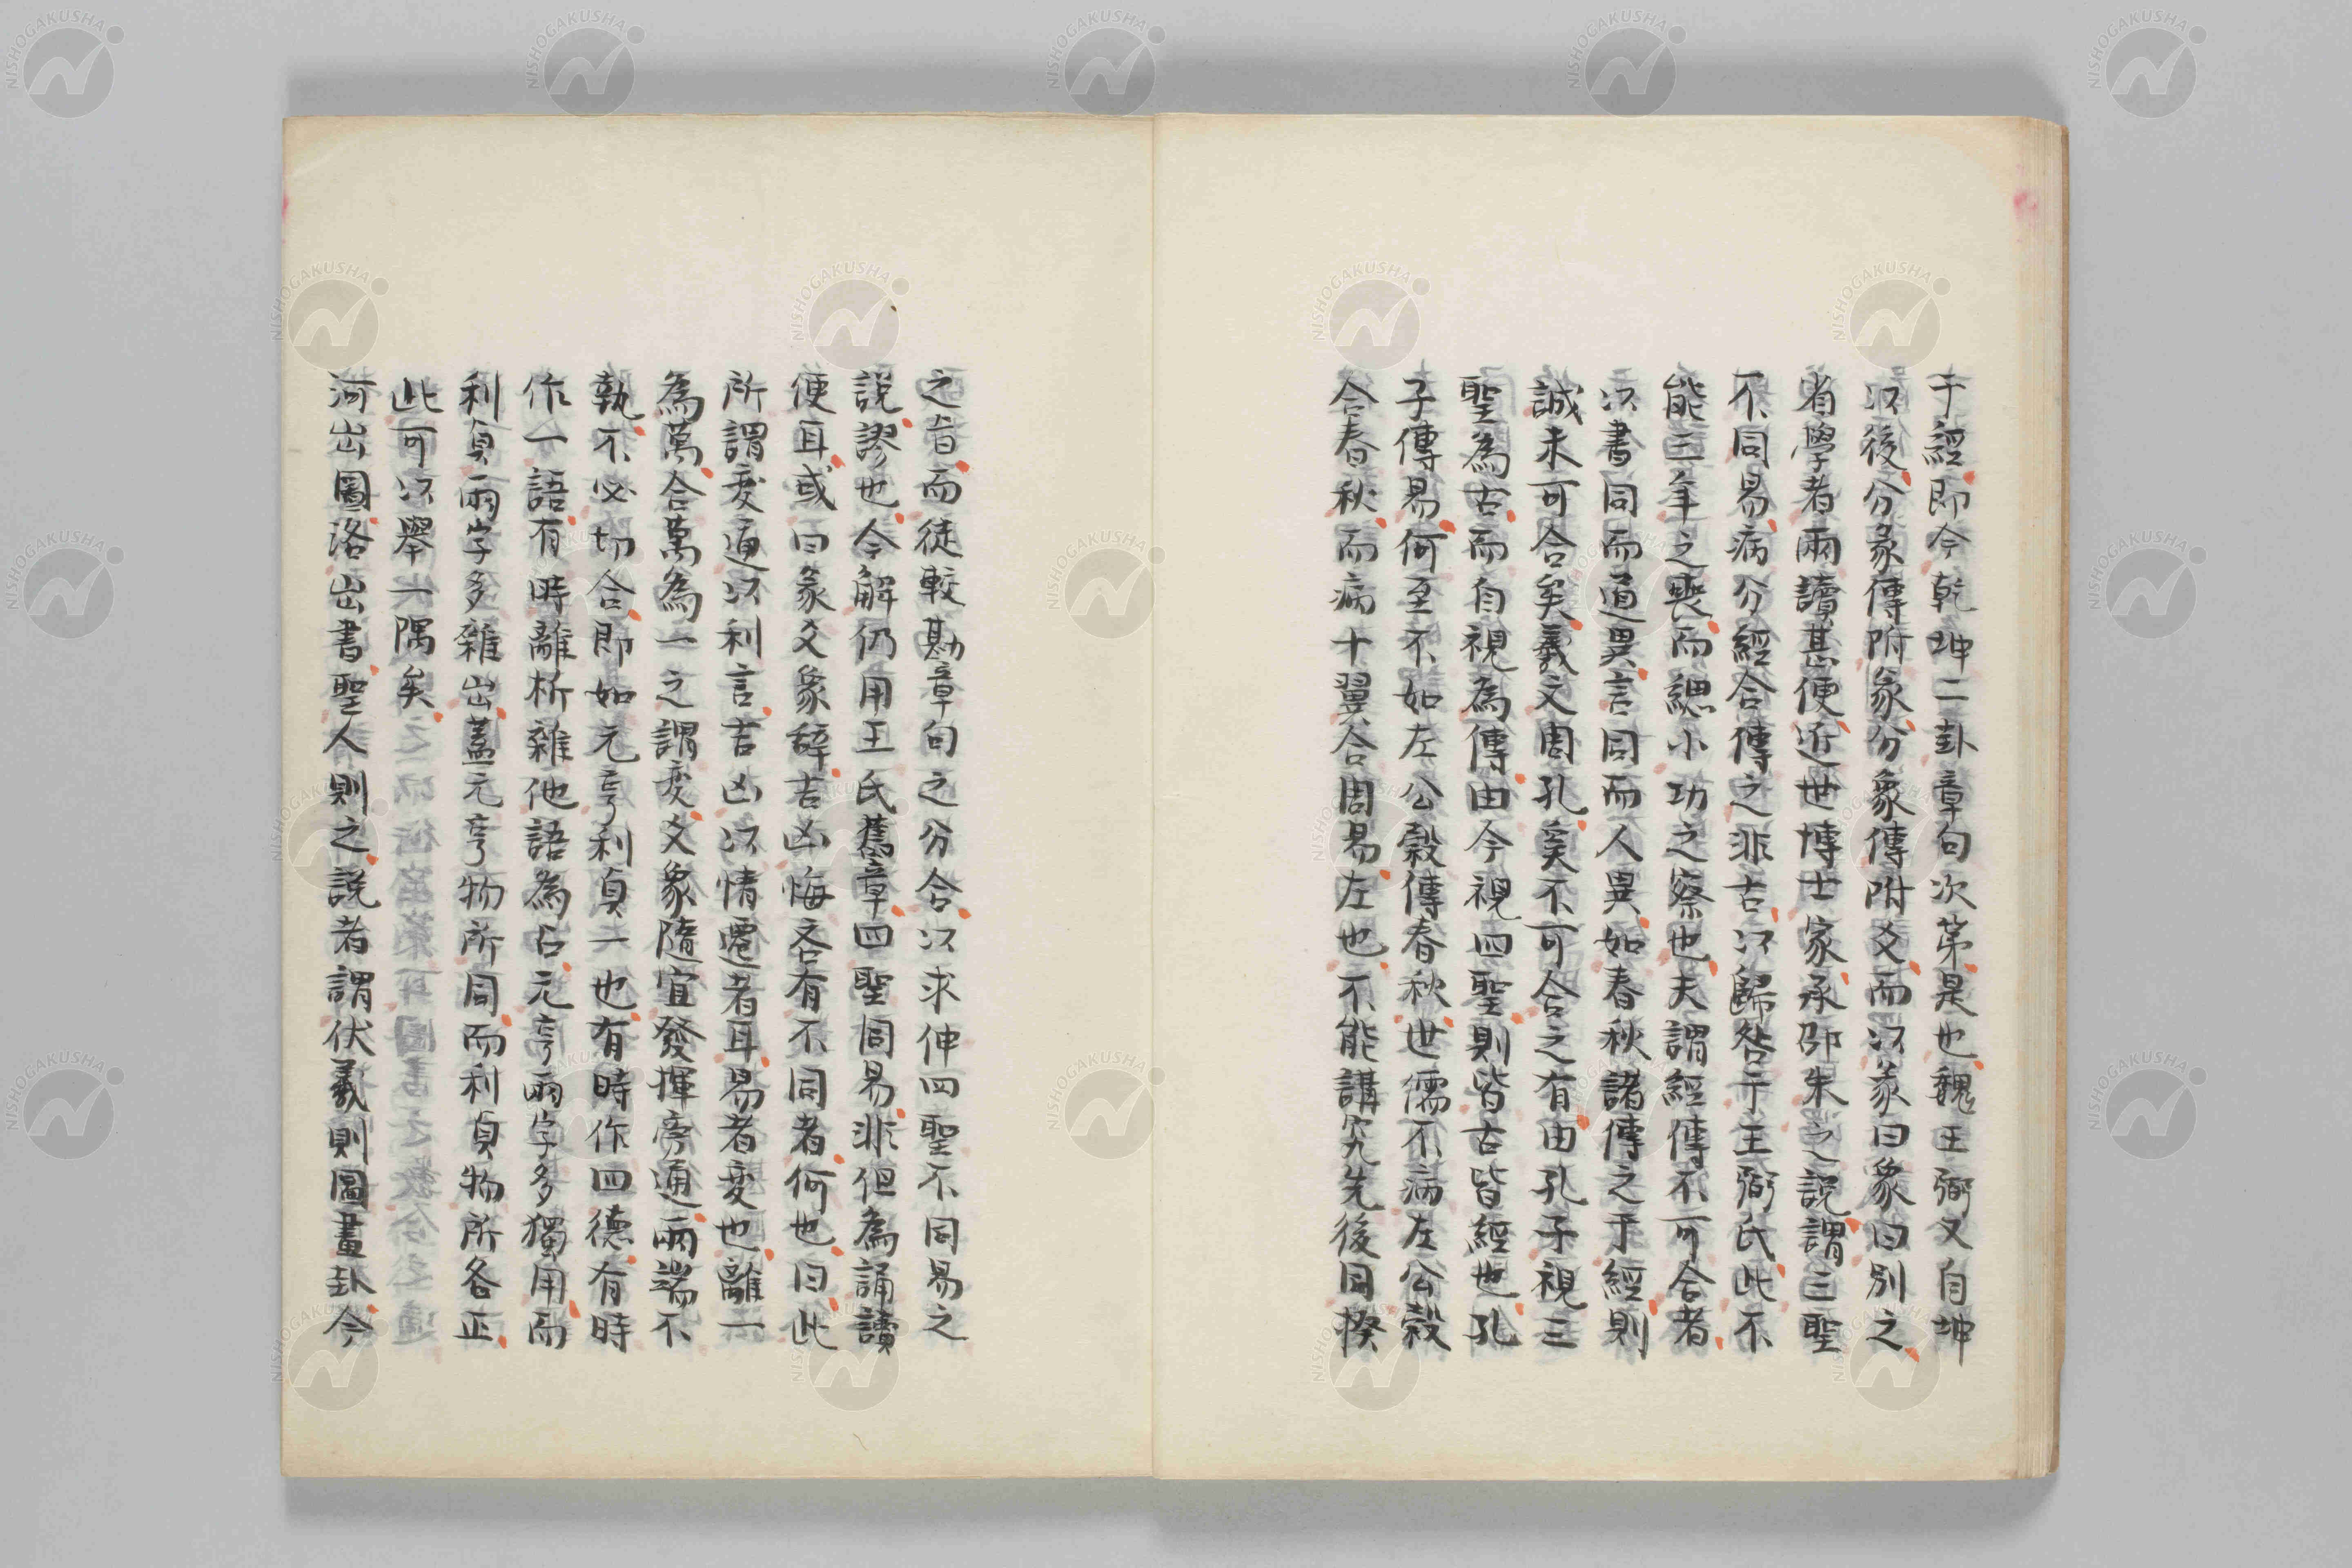 于經即今乾坤二卦章句次第是也魏王弼又自坤
以後分彖傳附彖分象傳附爻而以彖曰象曰別之
省學者兩讀甚便近世博士家承邵朱之說謂三聖
不同易病分經合傳之非古以歸咎于王弼氏此不
能三年之喪而緦小功之察也夫謂經傳不可合者
以書同而道異言同而人異如春秋諸傳之于經則
誠未可合矣羲文周孔奚不可合之有由孔子視三
聖為古而自視為傳由今視四聖則皆古皆經也孔
子傳易何至不如左公穀傳春秋世儒不病左公穀
合春秋而病十翼合周易左也不能講究先後同揆
之旨而徒較勘章句之分合以求伸四聖不同易之
說謬也今解仍用王氏舊章四聖同易非但為誦讀
便耳或曰彖爻象辭吉凶悔吝有不同者何也曰此
所謂変通以利言吉凶以情遷者耳易者変也離一
為萬合萬為一之謂変爻象隨宜發揮旁通兩端不
執不必切合即如元亨利貞一也有時作四德有時
作一語有時離析雜他語為占元亨兩字多獨用而
利貞兩字多雜出蓋元亨物所同而利貞物所各正
此可以舉一隅矣
河出圖洛出書聖人則之說者謂伏羲則圖畫卦今
NISHOGAKUSHA